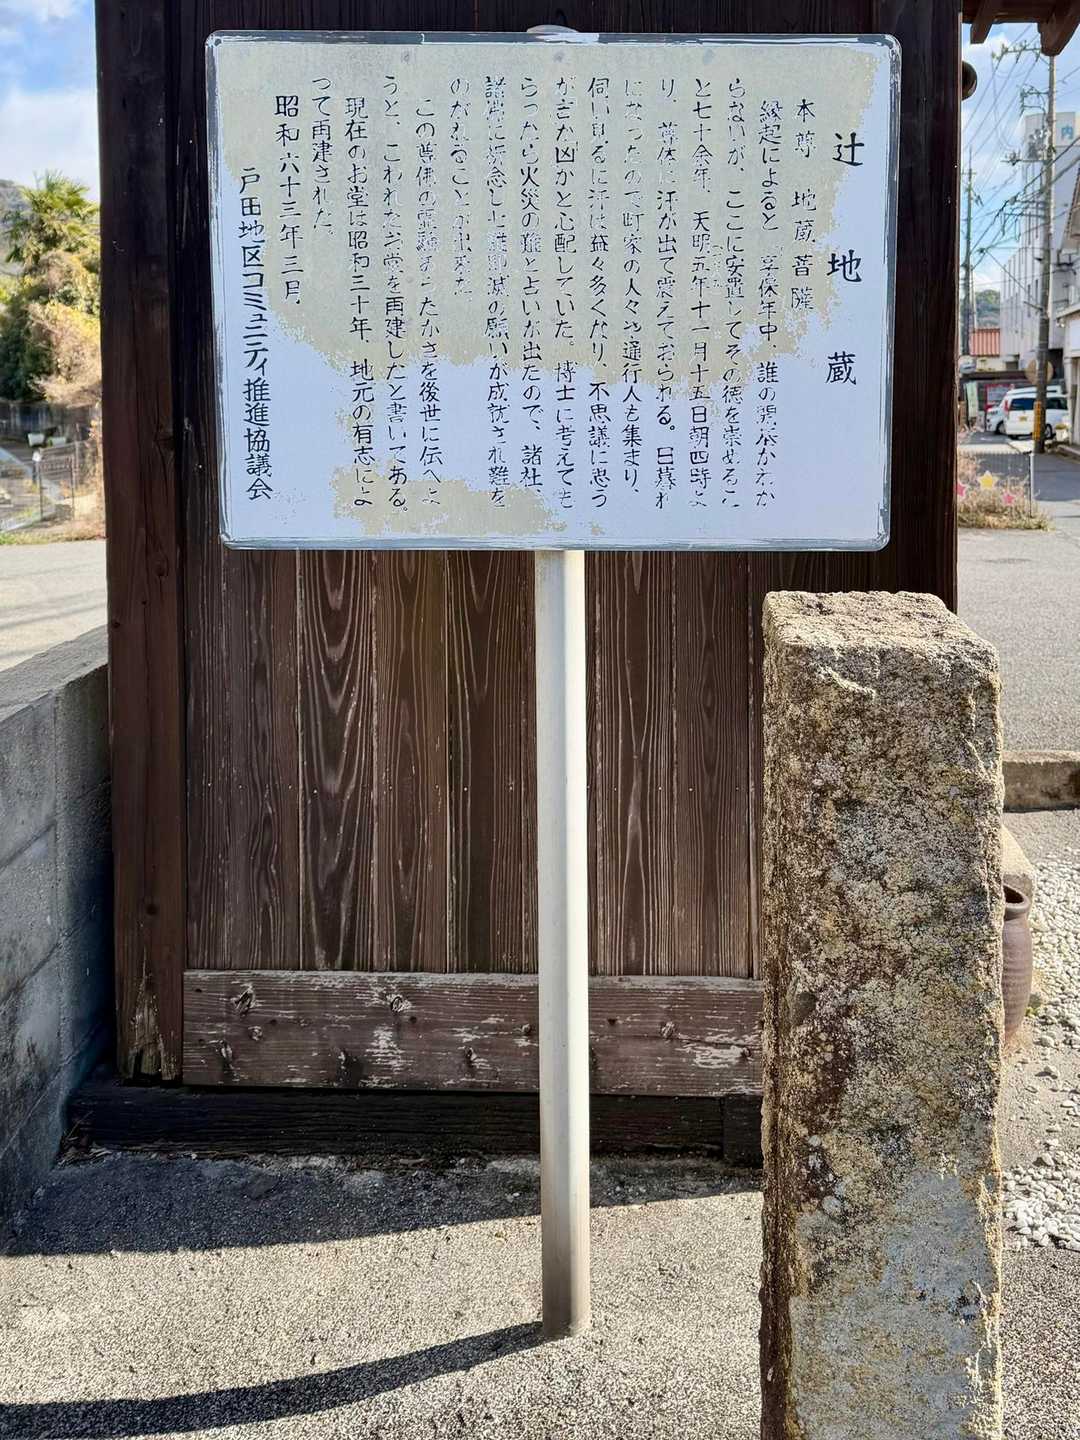 辻地蔵
本尊 地蔵菩薩
縁起によると、享保年中、誰の開基かわか
らないが、ここに安置してその徳を崇めるこ
と七十余年、天明五年十一月十五日朝四時よ
り、尊体に汗が出て震えておられる。日暮れ
になったので町家の人々や通行人も集まり、
伺い見るに汗は益々多くなり、不思議に思う
が吉か凶かと心配していた。博士に考えても
らったら火災の難と占いが出たので、諸社、
諸佛に祈念し七難即滅の願いが成就され難を
のがれることが出来た。
この尊佛の霊験あったかさを後世に伝へよ
うと、こわれたお堂を再建したと書いてある。
現在のお堂は昭和三十年、地元の有志によ
って再建された。
昭和六十三年三月
戸田地区コミュニティ推進協議会
内